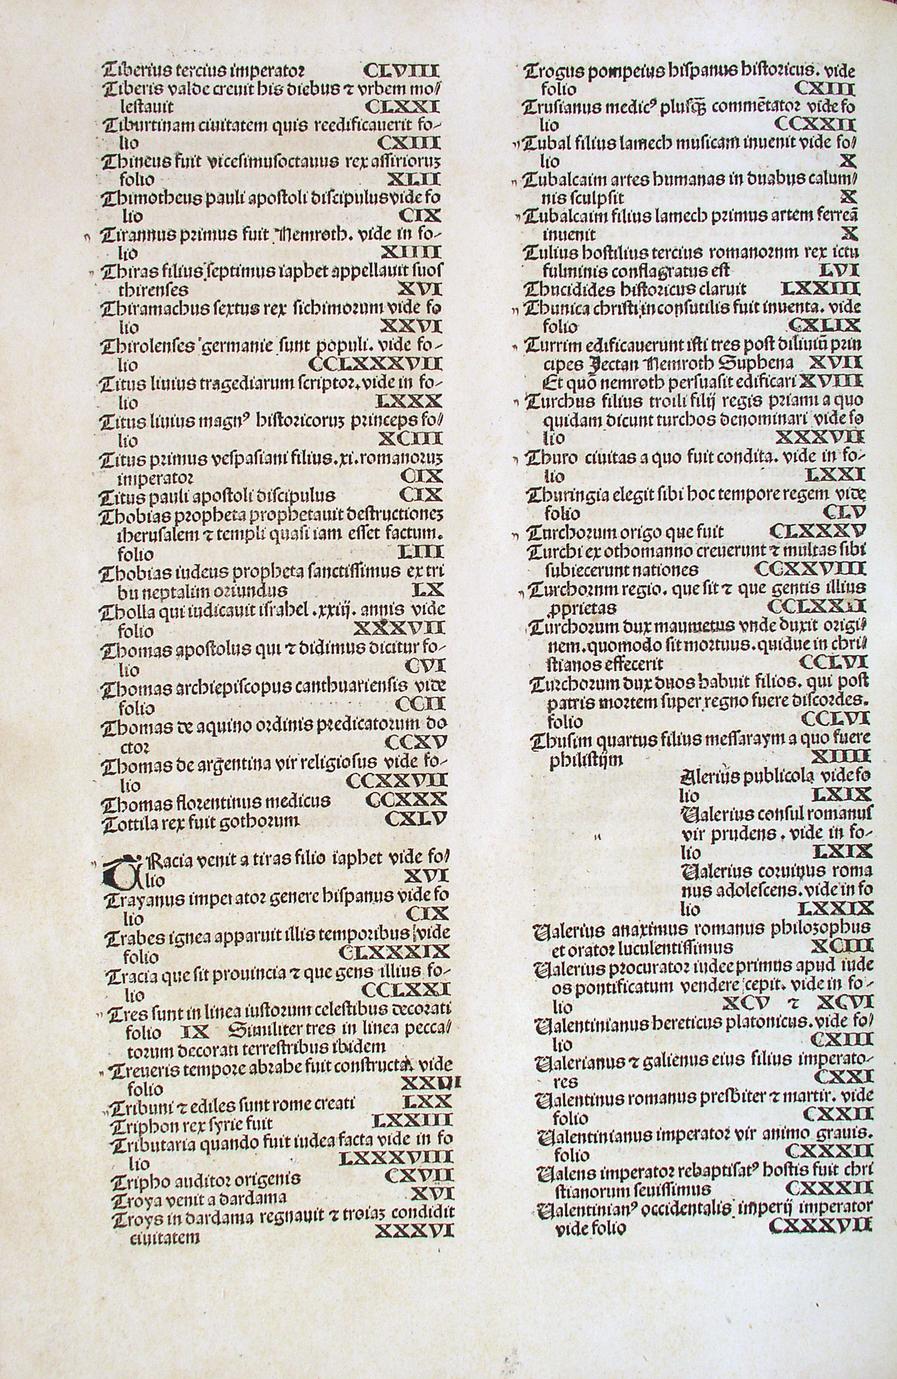 Tiberius tercius imperator CLVIII
Tiberis valde creuit his diebus ⁊ vrbem mo/
lestauit CLXXI
Tiburtinam ciuitatem quis reedificauerit fo-
lio CXIII
Thineus fuit vicesimusoctauus rex assirioruꝫ
folio XLII
Thimotheus pauli apostoli discipulus vide fo
lio CIX
Tirannus primus fuit Nemroth. vide in fo-
lio XIIII
Thiras filius septimus iaphet appellauit suos
thirenses XVI
Thiramachus sextus rex sichimorum vide fo
lio XXVI
Thirolenses germanie sunt populi. vide fo-
lio CCLXXXVII
Titus liuius tragediarum scriptor. vide in fo-
lio LXXX
Titus liuius magnꝰ historicoruꝫ princeps fo/
lio XCIII
Titus primus vespasiani filius .xi. romanoruꝫ
imperator CIX
Titus pauli apostoli discipulus CIX
Thobias propheta prophetauit destructioneꝫ
iherusalem ⁊ templi quasi iam esset factum.
folio LIII
Thobias iudeus propheta sanctissimus ex tri
bu neptalim oriundus LX
Tholla qui iudicauit israhel .xxiij. annis vide
folio XXXVII
Thomas apostolus qui ⁊ didimus dicitur fo-
lio CVI
Thomas archiepiscopus canthuariensis vide
folio CCII
Thomas de aquino ordinis predicatorum do
ctor CCXV
Thomas de argentina vir religiosus vide fo-
lio CCXXVII
Thomas florentinus medicus CCXXX
Tottila rex fuit gothorum CXLV
TRacia venit a tiras filio iaphet vide fo/
lio XVI
Trayanus imperator genere hispanus vide fo
lio CIX
Trabes ignea apparuit illis temporibus vide
folio CLXXXIX
Tracia que sit prouincia ⁊ que gens illius fo-
lio CCLXXI
Tres sunt in linea iustorum celestibus decorati
folio IX Similiter tres in linea pecca/
torum decorati terrestribus ibidem
Treueris tempore abrahe fuit constructa vide
folio XXVI
Tribuni ⁊ ediles sunt rome creati LXX
Triphon rex syrie fuit LXXIII
Tributaria quando fuit iudea facta vide in fo
lio LXXXVIII
Tripho auditor origenis CXVII
Troya venit a dardama XVI
Troys in dardama regnauit ⁊ troiaꝫ condidit
ciuitatem XXXVI
Trogus pompeius hispanus historicus. vide
folio CXIII
Trusianus medicꝰ plusqꝫ commētator vide fo
lio CCXXII
Tubal filius lamech musicam inuenit vide fo/
lio X
Tubalcaim artes humanas in duabus calum/
nis sculpsit X
Tubalcaim filius lamech primus artem ferreā
inuenit X
Tulius hostilius tercius romanornm rex ictu
fulminis conflagratus est LVI
Thucidides historicus claruit LXXIII
Thunica christi inconsutilis fuit inuenta. vide
folio CXLIX
Turrim edificauerunt isti tres post diluuiū prin
cipes Jectan Nemroth Suphena XVII
Et quō nemroth persuasit edificari XVIII
Turchus filius troili filij regis priami a quo
quidam dicunt turchos denominari vide fo
lio XXXVII
Thuro ciuitas a quo fuit condita. vide in fo-
lio LXXI
Thuringia elegit sibi hoc tempore regem vide
folio CLV
Turchorum origo que fuit CLXXXV
Turchi ex othomanno creuerunt ⁊ multas sibi
subiecerunt nationes CCXXVIII
Turchornm regio. que sit ⁊ que gentis illius
ꝓprietas CCLXXII
Turchorum dux maumetus vnde duxit origi/
nem. quomodo sit mortuus. quidue in chri/
stianos effecerit CCLVI
Turchorum dux duos habuit filios. qui post
patris mortem super regno fuere discordes.
folio CCLVI
Thusim quartus filius messaraym a quo fuere
philistijm XIIII
Alerius publicola vide fo
lio LXIX
Ualerius consul romanus
vir prudens. vide in fo-
lio LXIX
Ualerius coruinus roma
nus adolescens. vide in fo
lio LXXIX
Ualerius anaximus romanus philosophus
et orator luculentissimus XCIII
Ualerius procurator iudee primus apud iude
os pontificatum vendere cepit. vide in fo-
lio XCV ⁊ XCVI
Ualentinianus hereticus platonicus. vide fo/
lio CXIII
Ualerianus ⁊ galienus eius filius imperato-
res CXXI
Ualentinus romanus presbiter ⁊ martir. vide
folio CXXII
Ualentinianus imperator vir animo grauis.
folio CXXXII
Ualens imperator rebaptisatꝰ hostis fuit chri
stianorum seuissimus CXXXII
Ualentinianꝰ occidentalis imperij imperator
vide folio CXXXVII